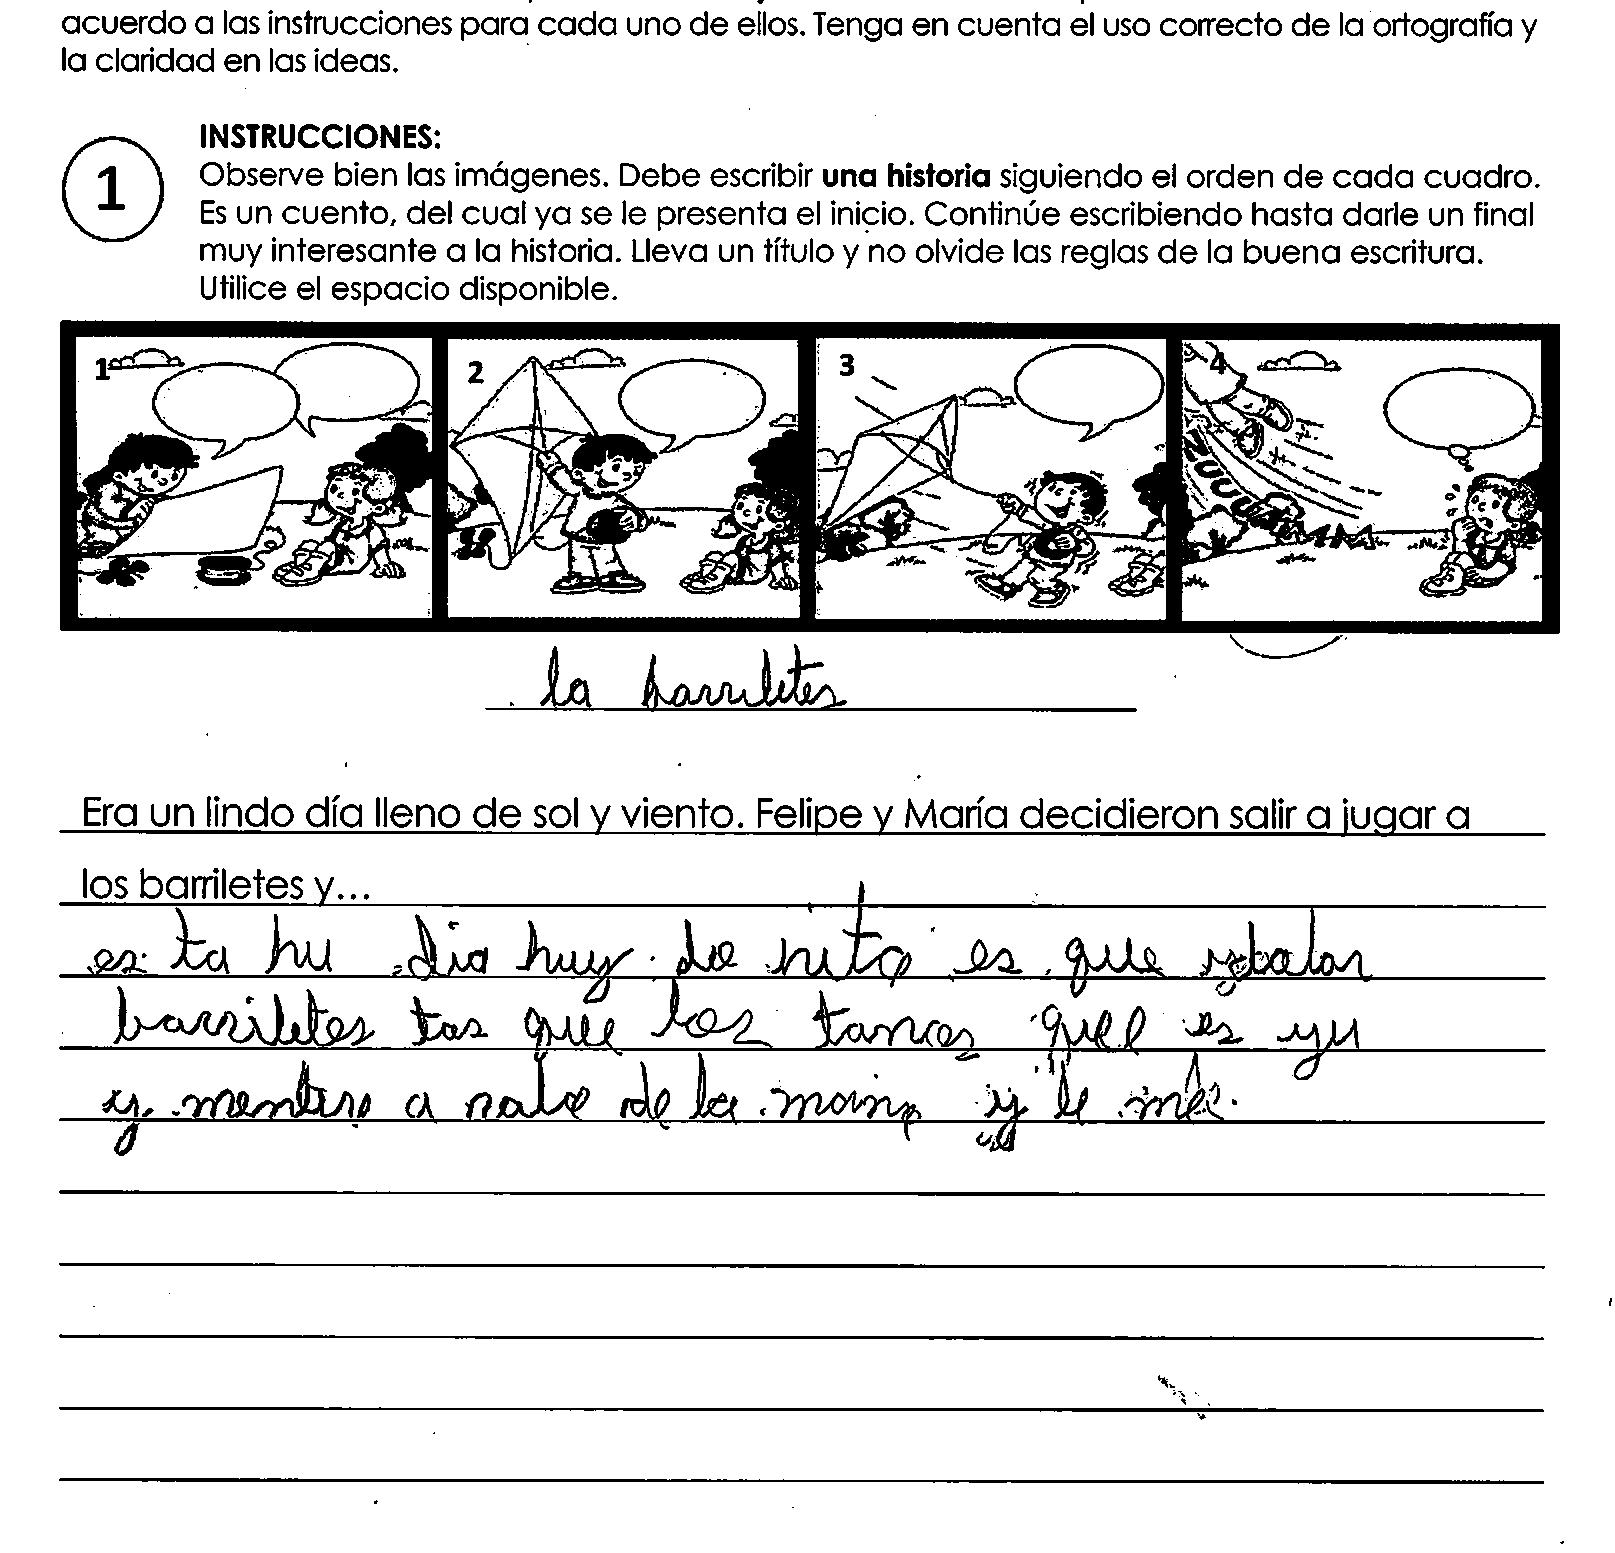 acuerdo a las instrucciones para cada uno de ellos. Tenga en cuenta el uso correcto de la ortografía y
la claridad en las ideas.
1
INSTRUCCIONES:
Observe bien las imágenes. Debe escribir una historia siguiendo el orden de cada cuadro.
Es un cuento, del cual ya se le presenta el inicio. Continúe escribiendo hasta darle un final
muy interesante a la historia. Lleva un título y no olvide las reglas de la buena escritura.
Utilice el espacio disponible.
1 2 3 4
la barriletes
Era un lindo día lleno de sol y viento. Felipe y María decidieron salir a jugar a
los barriletes y...
es ta hu dia huy es que
barriletes tas que los que es yu
y a de la y le